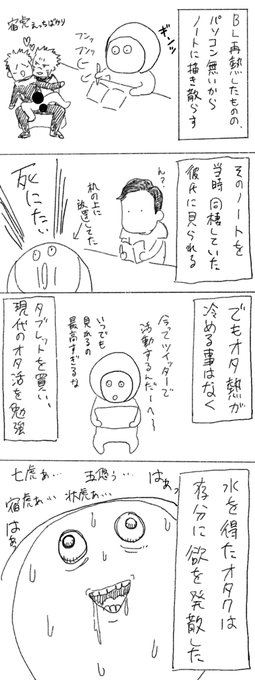 BL再熱したものの、
パソコン無いから
ノートに描き散らす
フンッ
フンッ
フヒヒ
宿虎えっちばかり
そのノートを
当時同棲していた
彼氏に見られる
ん?
机の上に
放置してた
死にたい
でもオタ熱が
冷める事はなく
今ってツイッターで
活動するんだ〜へ〜
いつでも
見れるの
最高すぎるな
タブレットを買い、
現代のオタ活を勉強
水を得たオタクは
存分に欲を発散した
はぁっ
五悠ぅ…
七虎ぁ…
伏虎ぁ…
宿虎ぁ…
はぁぁ